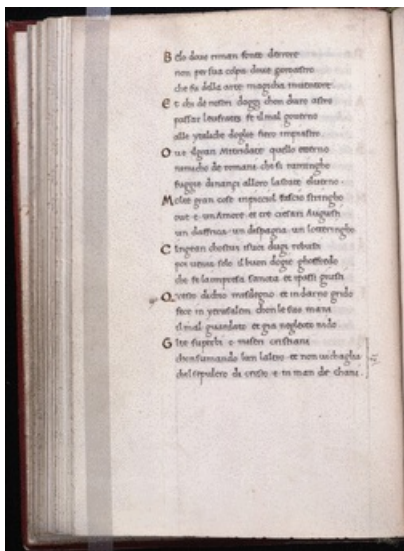 Belo doue riman fonte derrore
non per sua colpa doue zoroastro
che fu della arte magicha inuentore
Et chi de nostri doggi chen duro astro
passar leufrates fe il mal gouerno
alle ytaliche doglie fiero impiastro
Oue il gran Mitridate quello eterno
nimicho de romani che si ramingho
fuggi dinanzi alloro la state el uerno
Molte gran cose in picciol fascio stringho
oue e un Arture et tre cesari Augusti
un daffrica un dispagna un lotteringho
Cingean chostui isuoi dugi robusti
poi uenia solo il buon dogie ghottifredo
che fe la impresa sancta et ipassi giusti
Questo dichio misdegno et indarno grido
fece in yerusalem chon le sue mani
il mal guardato et gia neglecto nido
Gite superbi o miseri cristiani
chonsumando lun laltro et non ui chaglia
chel sepulcro di cristo e in man de chani